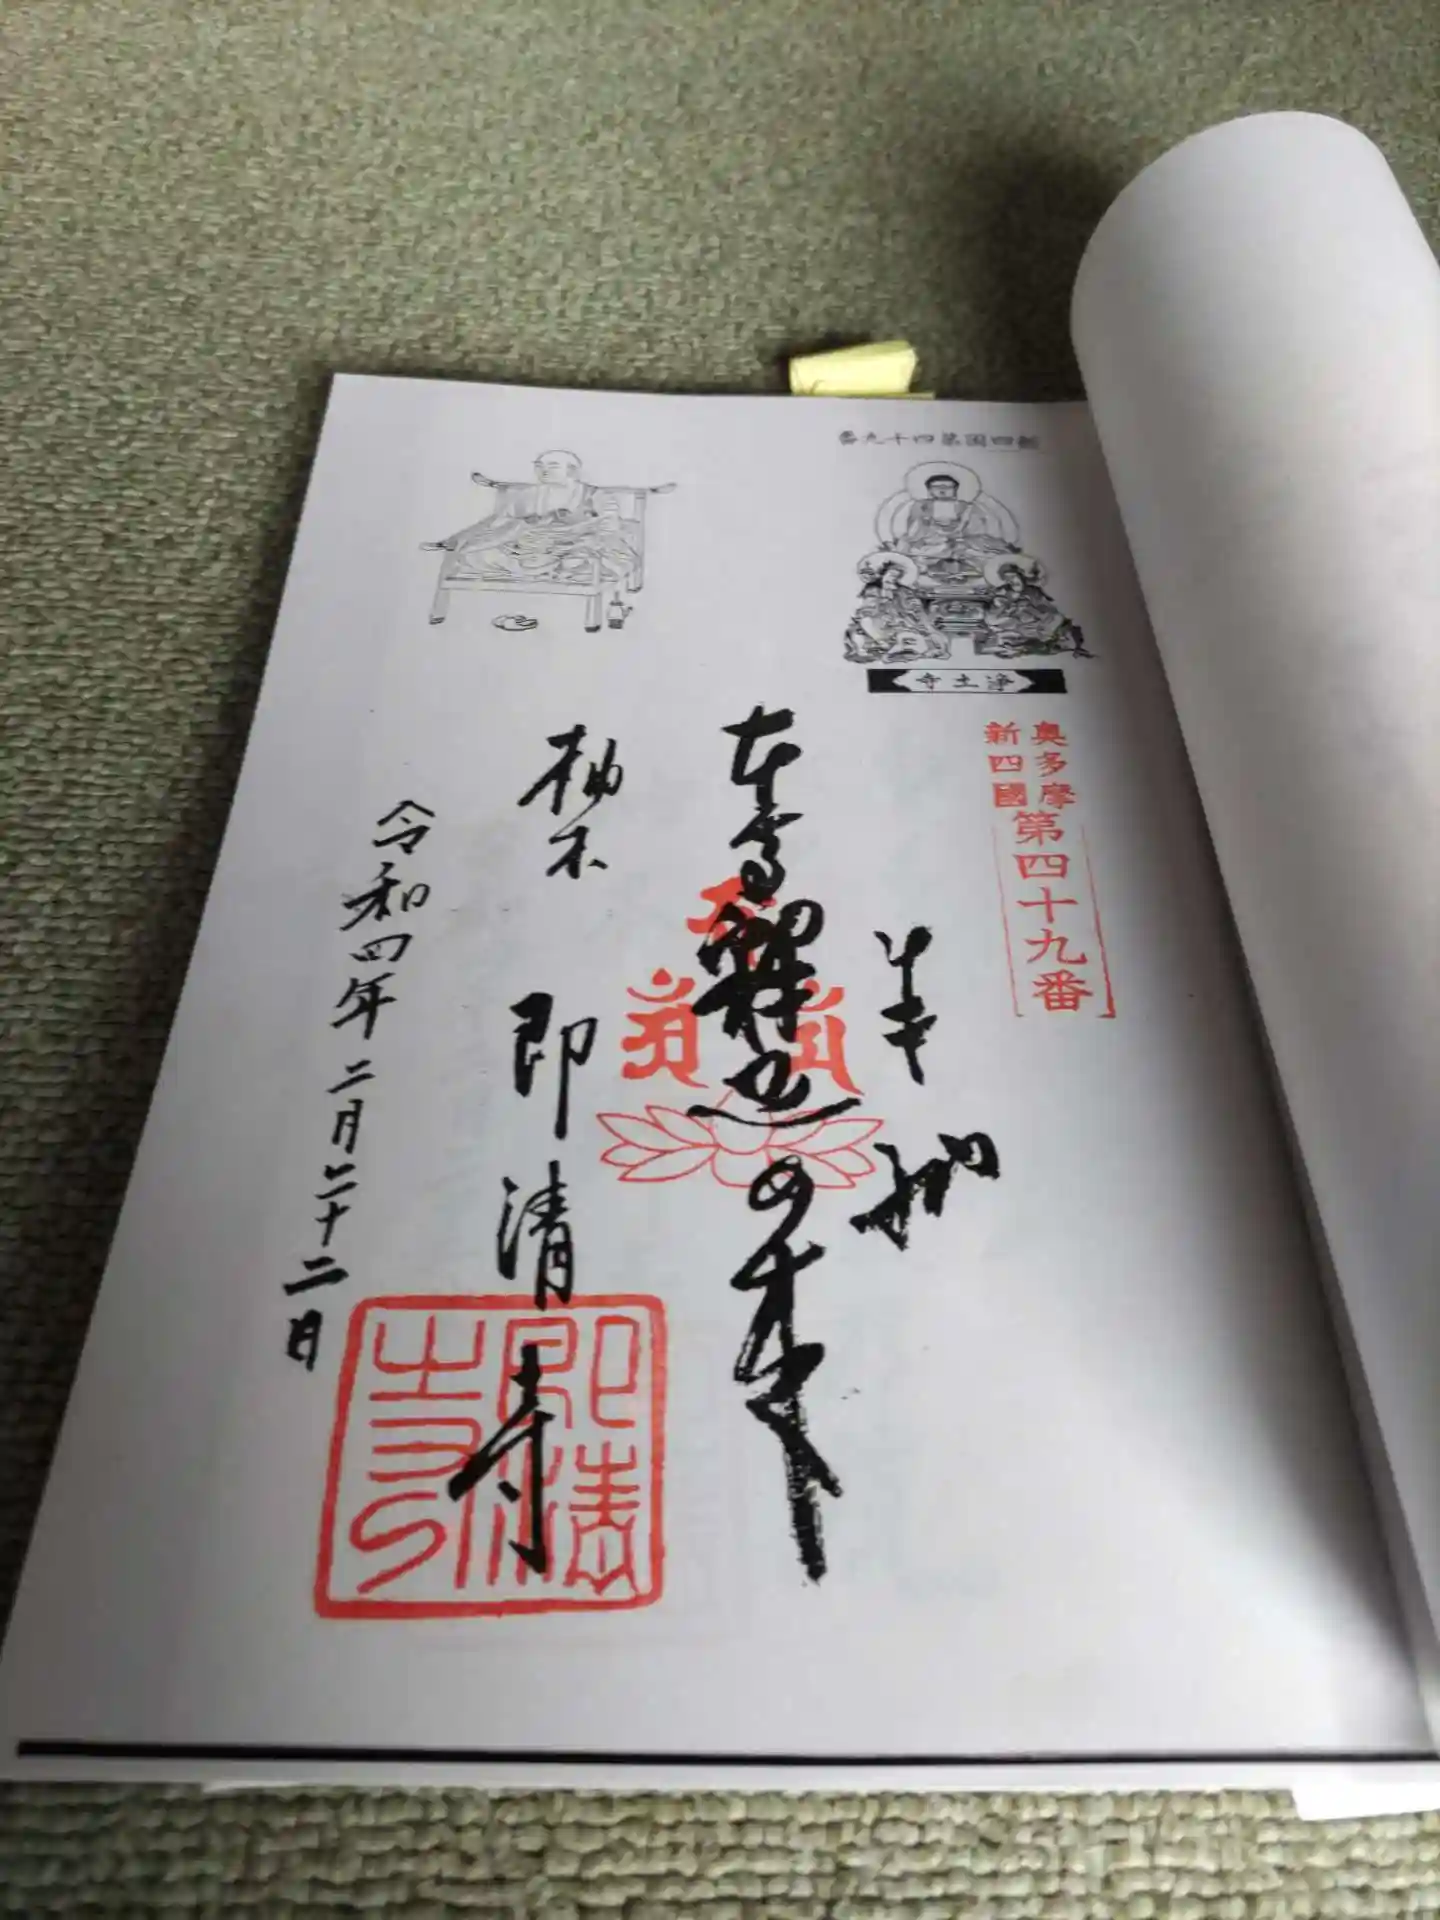 番九十四第国四新
寺土浄
奥多摩
新四國
第四十九番
奉拝
本尊釋迦如来
柚木 即清寺
令和四年二月二十二日
即清寺